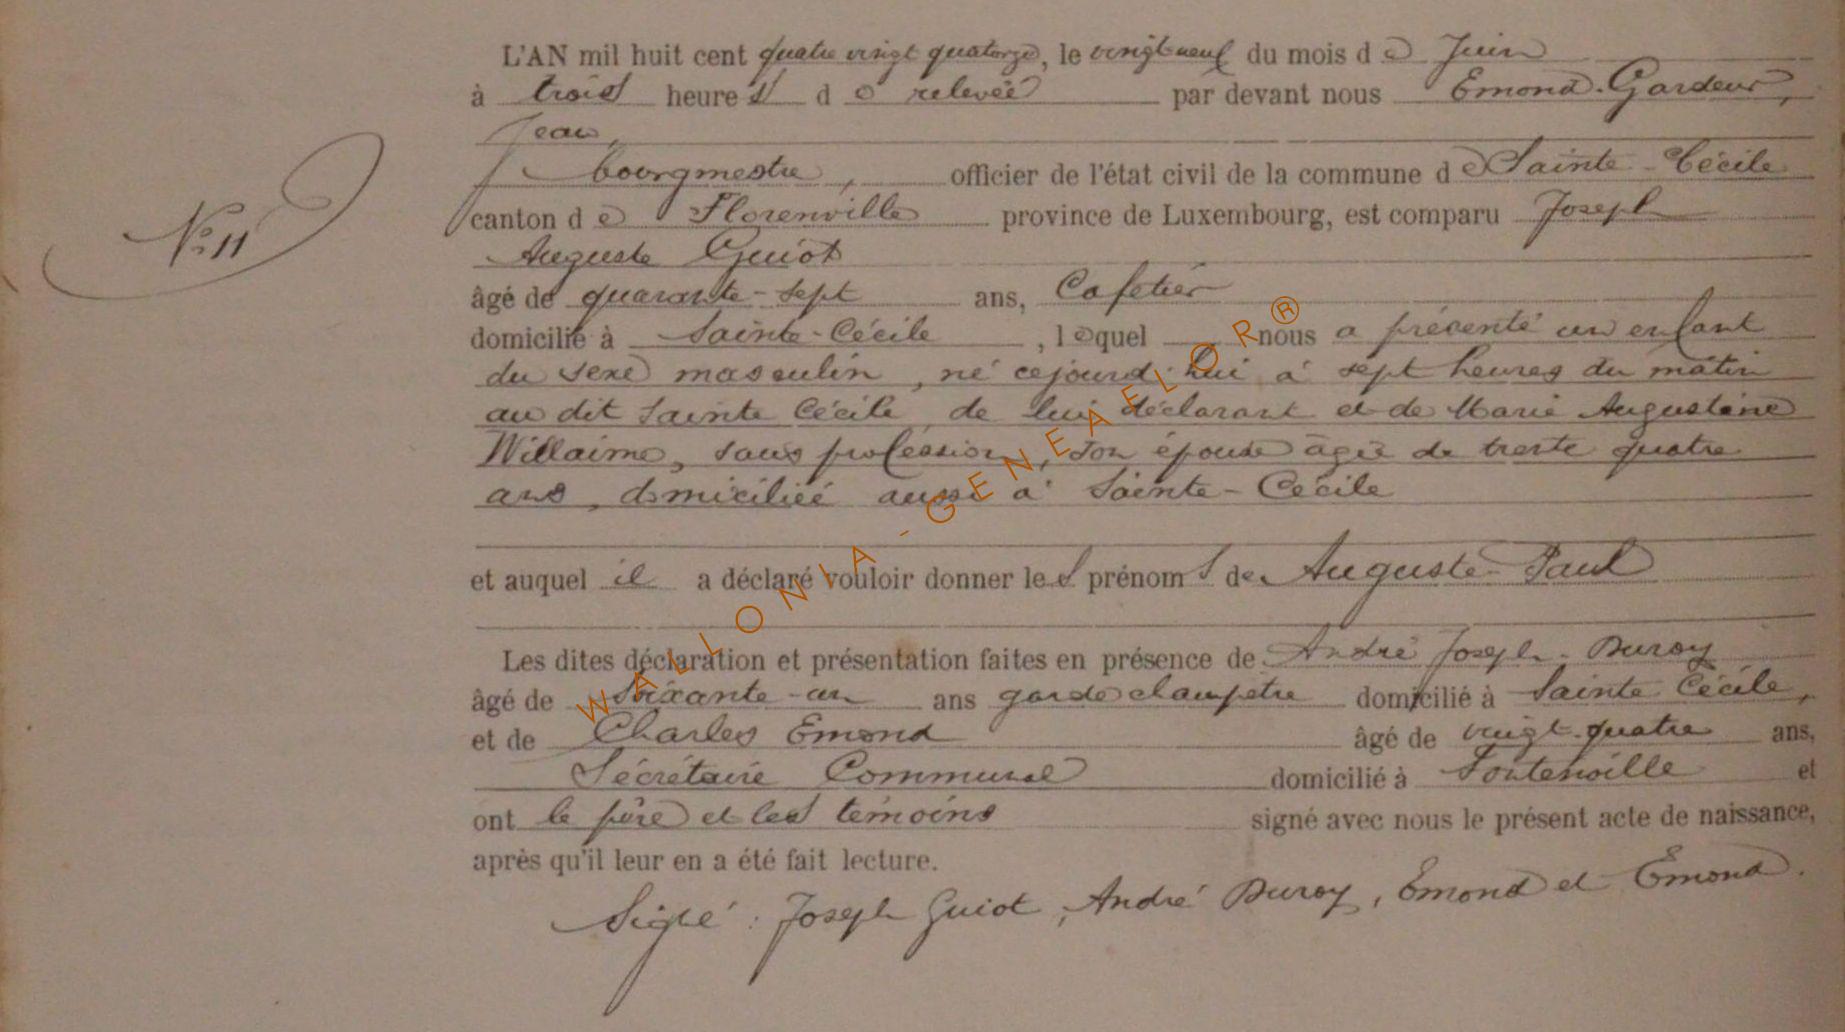 L'AN mil huit cent quatre vingt quatorze, le vingt neuf du mois de Juin
à trois heures de relevée par devant nous Emond-Gardeur,
Jean,
bourgmestre, officier de l'état civil de la commune de Sainte-Cécile
canton de Florenville province de Luxembourg, est comparu Joseph
N° 11
Auguste Guiot
âgé de quarante-sept ans, Cafetier
domicilié à Sainte-Cécile, lequel nous a présenté un enfant
du sexe masculin, né cejourd'hui à sept heures du matin
au dit Sainte Cécile de lui déclarant et de Marie Augustine
Willaime, sans profession, son épouse âgée de trente quatre
ans, domiciliée aussi à Sainte-Cécile
et auquel il a déclaré vouloir donner les prénoms de Auguste Paul
Les dites déclaration et présentation faites en présence de André Joseph Duroy
âgé de soixante-un ans garde champêtre domicilié à Sainte Cécile,
et de Charles Emond âgé de vingt-quatre ans,
Sécrétaire Communal domicilié à Fontenoille et
ont le père et les témoins signé avec nous le présent acte de naissance,
après qu'il leur en a été fait lecture.
Signé : Joseph Guiot, André Duroy, Emond et Emond.
WALLONIA - GENEAELOR®